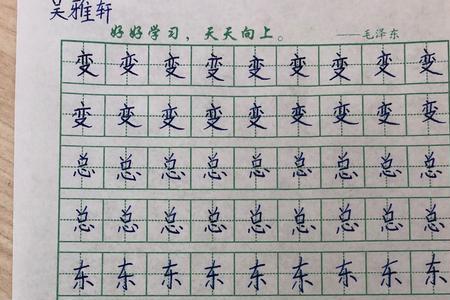 吴雅轩
好好学习，天天向上。 ——毛泽东
变变变变变变变变变
变变变变变变变变变
总总总总总总总总总
总总总总总总总总总
东东东东东东东东东